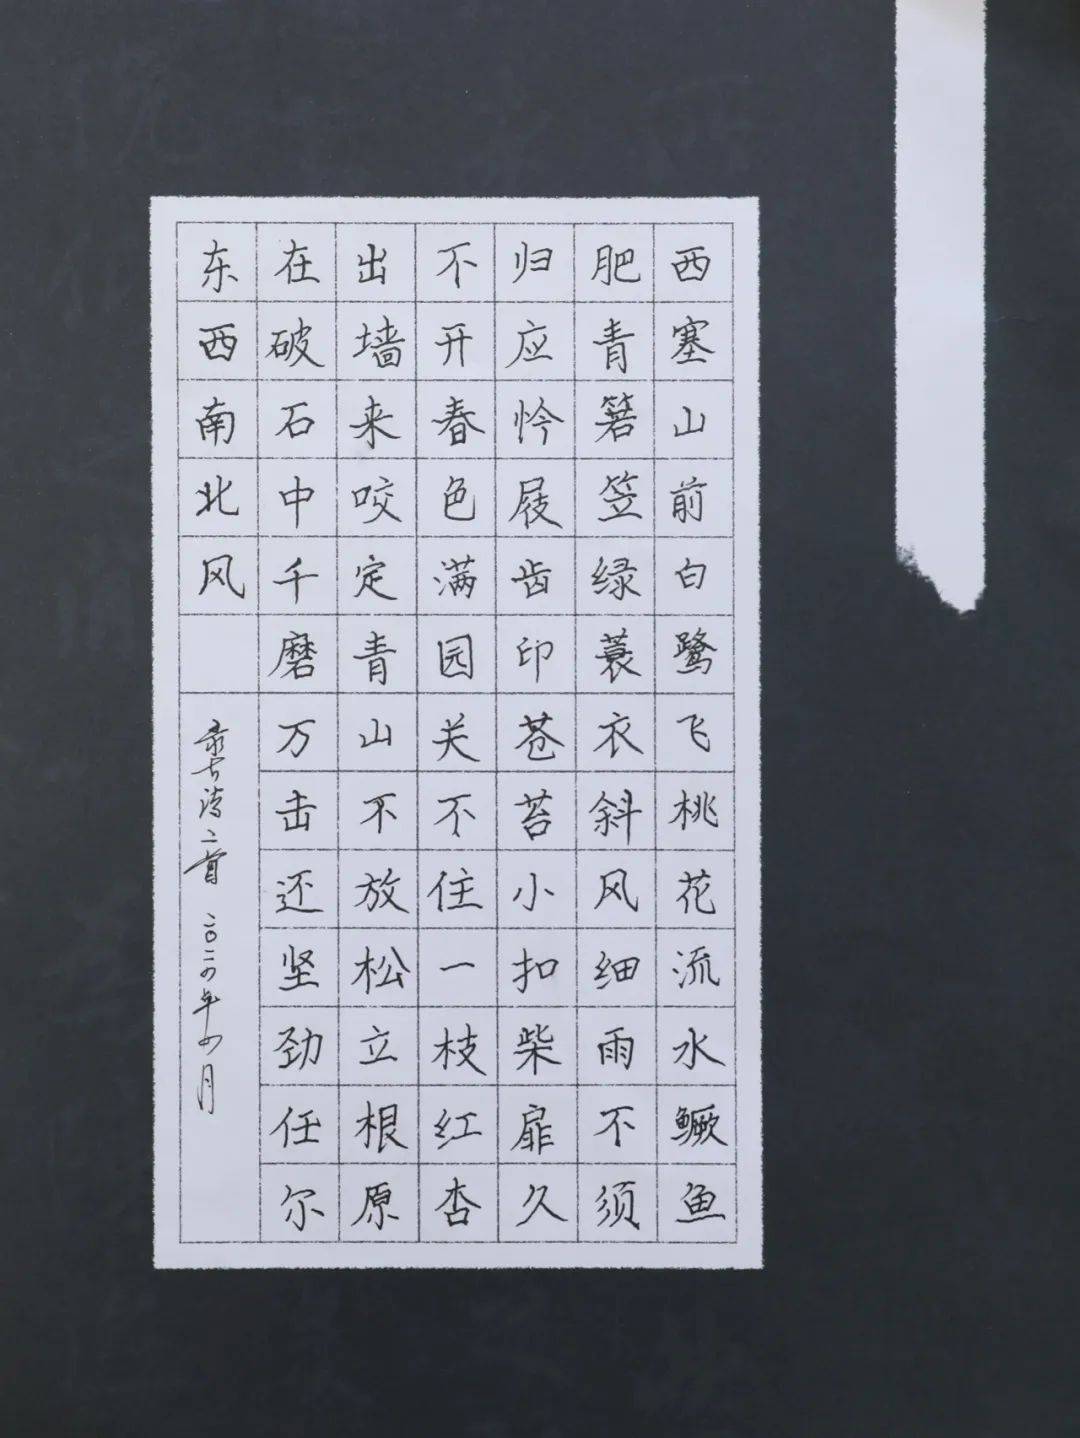 西塞山前白鹭飞桃花流水鳜鱼
肥青箬笠绿蓑衣斜风细雨不须
归应怜屐齿印苍苔小扣柴扉久
不开春色满园关不住一枝红杏
出墙来咬定青山不放松立根原
在破石中千磨万击还坚劲任尔
东西南北风
录古诗二首 二〇二四年四月